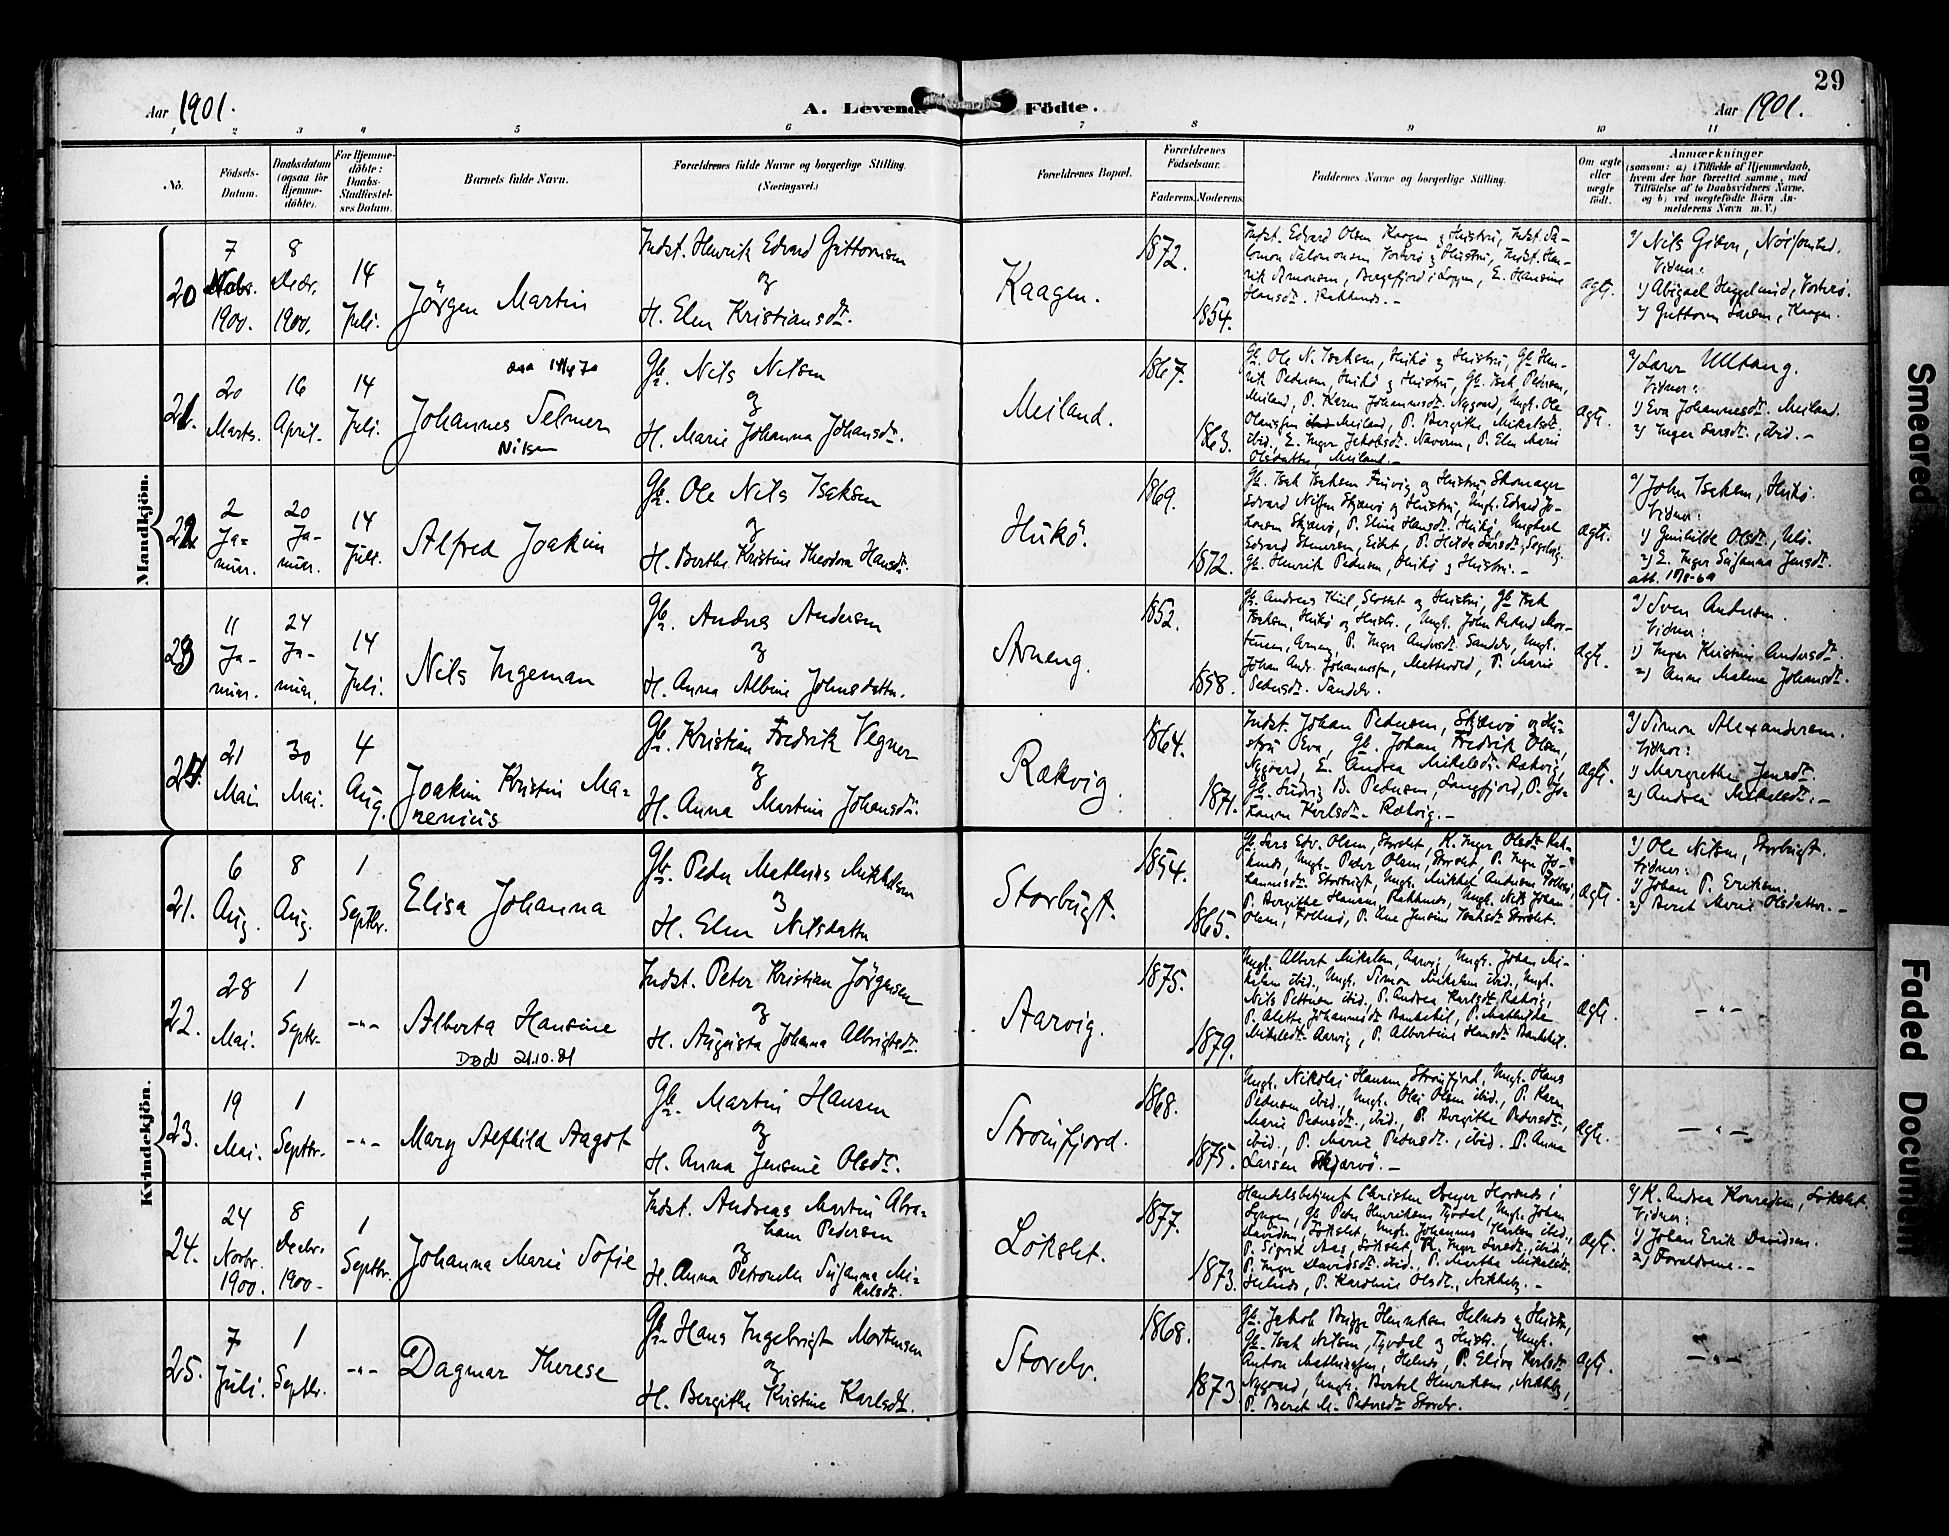 29
Aar 1901.
A. Levende Födte.
Aar 1901.
1 2 3 4 5 6 7 8 9 10 11
No.
Födsels-Datum.
Daabsdatum (ogsaa för Hjemme-döbte).
For Hjemme-döbte: Daabs-Stadfæstel-ses Datum.
Barnets fulde Navn.
Forældrenes fulde Navne og borgerlige Stilling.
(Næringsvei.)
Forældrenes Bopæl.
Forældrenes Födselsaar.
Faderens. Moderens.
Faddernes Navne og borgerlige Stilling.
Om ægte eller uægte födt.
Anmærkninger
(saasom: a) i Tilfælde af Hjemmedaab, hvem der har forrettet samme, med Tilföielse af to Daabsvidners Navne, og b) ved uægtefödte Börn An-melderens Navn m. V.)
Mandkjön.
20
7 Novbr. 1900.
8 Decbr. 1900.
14 Juli.
Jörgen Martin
Indst. Henrik Edvard Guttormsen
og
H. Elen Kristiansdtr.
Kaagen.
1872.
1854.
Indst. Edvard Olsen Kaagen og Hustru, Indst. Sa-
lomon Salomonsen Vorterö og Hustru, Indst. Hen-
rik Simonsen, Bergefjord i Lyngen, E. Hansine
Hansdt. Rakkenes. -
ægte.
1) Abigael Heggelund, Vorterö.
2) Guttorm Larsen, Kaagen.
21.
20 Marts.
16 April.
14 Juli.
Johannes Selmer
Nilsen
Gb. Nils Nilsen
og
H. Marie Johanna Johansdt.
Meiland.
1867.
1863.
Gb. Ole N. Isaksen, Hukö og Hustru, Gb. Hen-
rik Pedersen, Hukö og Hustru, Gb. Isak Pedersen,
Meiland, P. Karen Johannesdt. Nygaard, Ungk. Ole
Olaussen Meiland, P. Bergithe Mikelsdt.
ibid., E. Inger Jakobsdt. Naveren, P. Elen Marie
Olsdatter, Meiland. -
ægte.
a) Laver Ulstang.
Vidner:
1) Eva Johannesdt. Meiland.
2) Inger Larsdt., ibid. -
22
2 Januar.
20 Januar.
14 Juli.
Alfred Joakim
Gb. Ole Nils Isaksen
og
H. Berthe Kristine Theodora Hansdt.
Hukö.
1869.
1872.
Edvard Nilsen Skjærvö og Hustru, Ungk. Edvard Jo-
hansen Skjærvö, P. Eline Hansdt. Hukö, Ungkarl
Gb. Henrik Pedersen, Hukö og Hustru. -
ægte.
a) John Isaksen, Hukö.
Vidner:
1) Gunhilde Olsdt., Ulö.
2) E. Inger Susanna Jensdt.
23
11 Januar.
24 Januar.
14 Juli.
Nils Ingeman
Gb. Andreas Andersen
og
H. Anna Albine Johnsdatter.
Arneng.
1852.
1858.
Gb. Andreas Kiil, Slottet og Hustru, Gb. Isak
Isaksen, Hukö og Hustr., Ungk. John Rikard Mor-
tensen, Arneng, P. Inger Andersdt. Sandör, Ungk.
Johan Andr. Johannessen, Mettevold, P. Marie
Pedersdt. Sandör.
ægte.
a) Sven Andersen.
Vidner:
1) Inger Kristine Andersdt.
2) Anne Malene Johansdt.
24.
21 Mai.
30 Mai.
4 Aug.
Joakim Kristin Ma-
renius
Gb. Kristian Fredrik Vegner
og
H. Anna Martine Johansdt.
Rækvig.
1864.
1871.
Indst. Johan Pedersen, Skjærvö og Hu-
stru Eva, Gb. Johan Fredrik Olsen,
Nygaard, E. Andrea Mikelsdt. Rækvig,
Gb. Ludvig B. Pedersen, Langfjord, P. Jo-
hanne Karlsdt. Rækvig. -
ægte.
a) Simon Alexandersen.
Vidner:
1) Margrethe Jensdt.
2) Andrea Mikelsdt. -
Kvindekjön.
21.
6 Aug.
8 Aug.
1 Septbr.
Elisa Johanna
Gb. Peder Mathias Mikkelsen
og
H. Elen Nilsdatter
Storbugt.
1854.
1865.
Gb. Lars Edv. Olsen, Storslet, K. Inger Olsdt. Rak-
kenes, Ungk. Peder Olsen, Storslet, P. Inger Jo-
hannesdt. Storbugt, Ungk. Mikkel Andersen Follesö,
P. Bergithe Hansen, Rakkenes, Ungk. Nils Johan
Olsen, Follesö, P. Ane Jensine Isaksdt. Storslet.
ægte.
a) Ole Nilsen, Storbugt.
Vidner:
1) Johan P. Eriksen.
2) Beret Marie Olsdatter. -
22.
28 Mai.
1 Septbr.
-"-
Alberta Hansine
Død 21.10.81
Indst. Peter Kristian Jörgensen
og
H. Augusta Johanna Albrigtsdt.
Aarvig.
1875.
1879.
Ungk. Albert Mikelsen, Aarvig, Ungk. Johan Mi-
kelsen ibid., Ungk. Simon Mikelsen ibid., Ungk.
Nils Pettersen ibid., P. Andrea Karlsdt. Rækvig,
P. Alette Johannesdt. Bankekil, P. Mathilde
Mikelsdt. Aarvig, P. Albertine Hansdt. Bankekil.
ægte.
-"-
23.
19 Mai.
1 Septbr.
-"-
Mary Alfhild Aagot
Gb. Martin Hansen
og
H. Anna Jensine Olsdt.
Straumfjord.
1868.
1875.
Ungk. Nikolai Hansen Straumfjord, Ungk. Hans
Pedersen ibid., Ungk. Ole Olsen ibid., P. Karen
Marie Pedersdt., ibid., P. Bergithe Pedersdt.,
ibid., P. Marie Pedersdt., ibid. P. Anna
Larsen Skjærvö. -
ægte.
-"-
24.
24 Novbr. 1900.
8 Decbr. 1900.
1 Septbr.
Johanna Marie Sofie
Indst. Andreas Martin Abra-
ham Pedersen
og
H. Anna Petronelle Susanna Mi-
kalsdt.
Lökslet.
1877.
1873.
Handelsbetjent Christen Dreyer Havnnes i
Lyngen, Gb. Peder Henriksen Tyvdal, Ungk. Johan
Davidsen, Lökslet, Ungk. Johannes Karlsen ibid.,
P. Sigrid Aas, Lökslet, K. Inger Larsdt., ibid.,
P. Inger Davidsdt. ibid., P. Martha Mikelsdt.
Helnes, P. Karoline Olsdt., Nikkeby. -
ægte.
a) K. Andrea Konradsen, Lökslet.
Vidner:
1) Johan Erik Davidsen.
2) Forældrene. -
25.
7 Juli.
1 Septbr.
-"-
Dagmar Therese
Gb. Hans Ingebrigt Mortensen
og
H. Bergithe Kristine Karlsdt.
Storelv.
1868.
1873.
Gb. Jakob Brygge Henriksen Helnes og Hustru,
Gb. Isak Nilsen, Tyvdal og Hustr., Ungk.
Anton Mathiassen, Helnes, P. Elisa Karlsdt.
Nygaard, Ungk. Bertel Henriksen, Nikkeby,
P. Beret M. Pedersdt. Storelv.
ægte.
-"-
Smeared
Faded Document